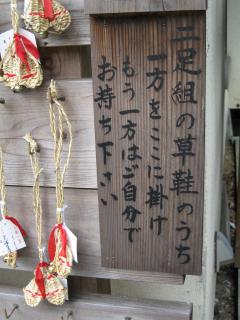 二足組の草鞋のうち
一方をここに掛け
もう一方はご自分で
お持ち下さい